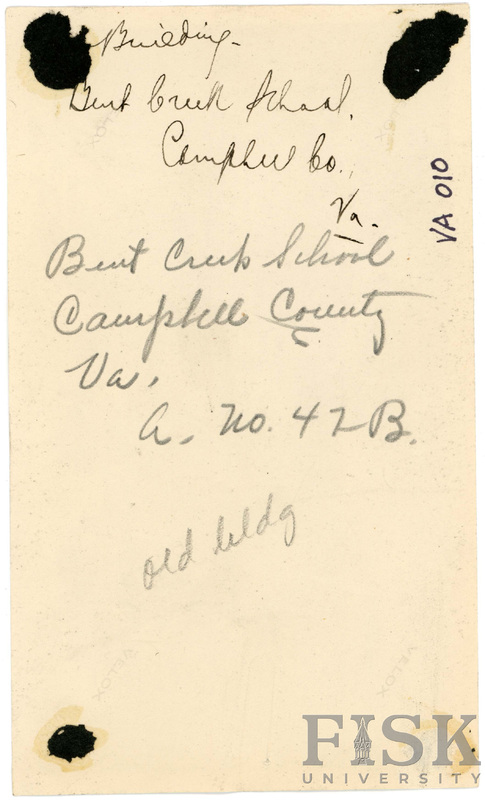 Building-
Bent Creek School.
Campbell Co.,
Va.
VA 010
Bent Creek School.
Campbell County
Va.
A. No. 42B.
old bldg
VELOX
FISK
UNIVERSITY